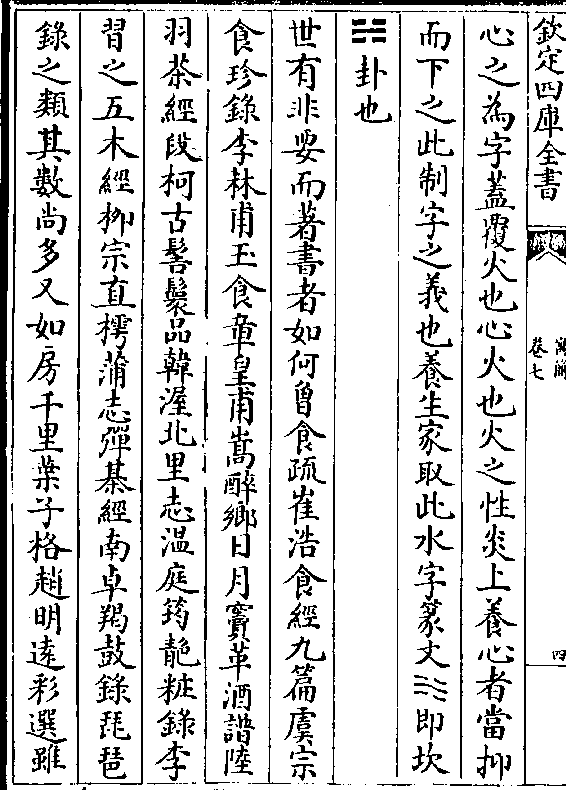 欽定四庫全書
卷七
四
心之為字蓋覆火也心火也火之性炎上養心者當抑
而下之此制字之義也養生家取此水字篆文即坎
☵卦也
世有非要而著書者如何曾食疏崔浩食經九篇虞宗
食珍錄李林甫玉食章皇甫嵩醉鄉日月竇革酒譜陸
羽茶經段柯古髻鬟品韓渥北里志溫庭筠靘粧錄李
習之五木經柳宗直樗蒲志彈棊經南卓羯鼓錄琵琶
錄之類其數尚多又如房千里葉子格趙明遠彩選雖